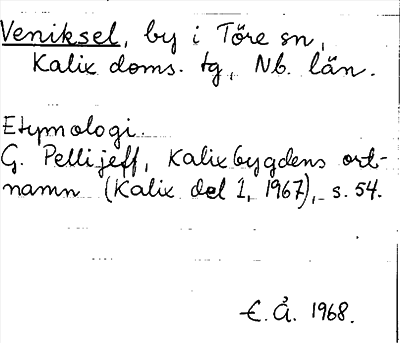 Veniksel, by i Töre sn,
Kalix doms. tg, Nb. län.
Etymologi.
G. Pellijeff, Kalixbygdens ort-
namn (Kalix del 1, 1967), s. 54.
E. Å. 1968.